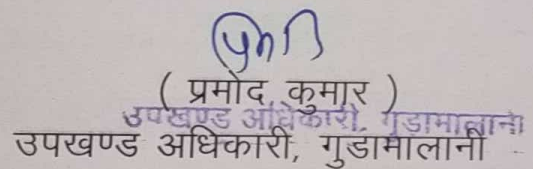 ( प्रमोद कुमार )
उपखण्ड अधिकारी, गुडामालाना
उपखण्ड अधिकारी, गुडामालानी